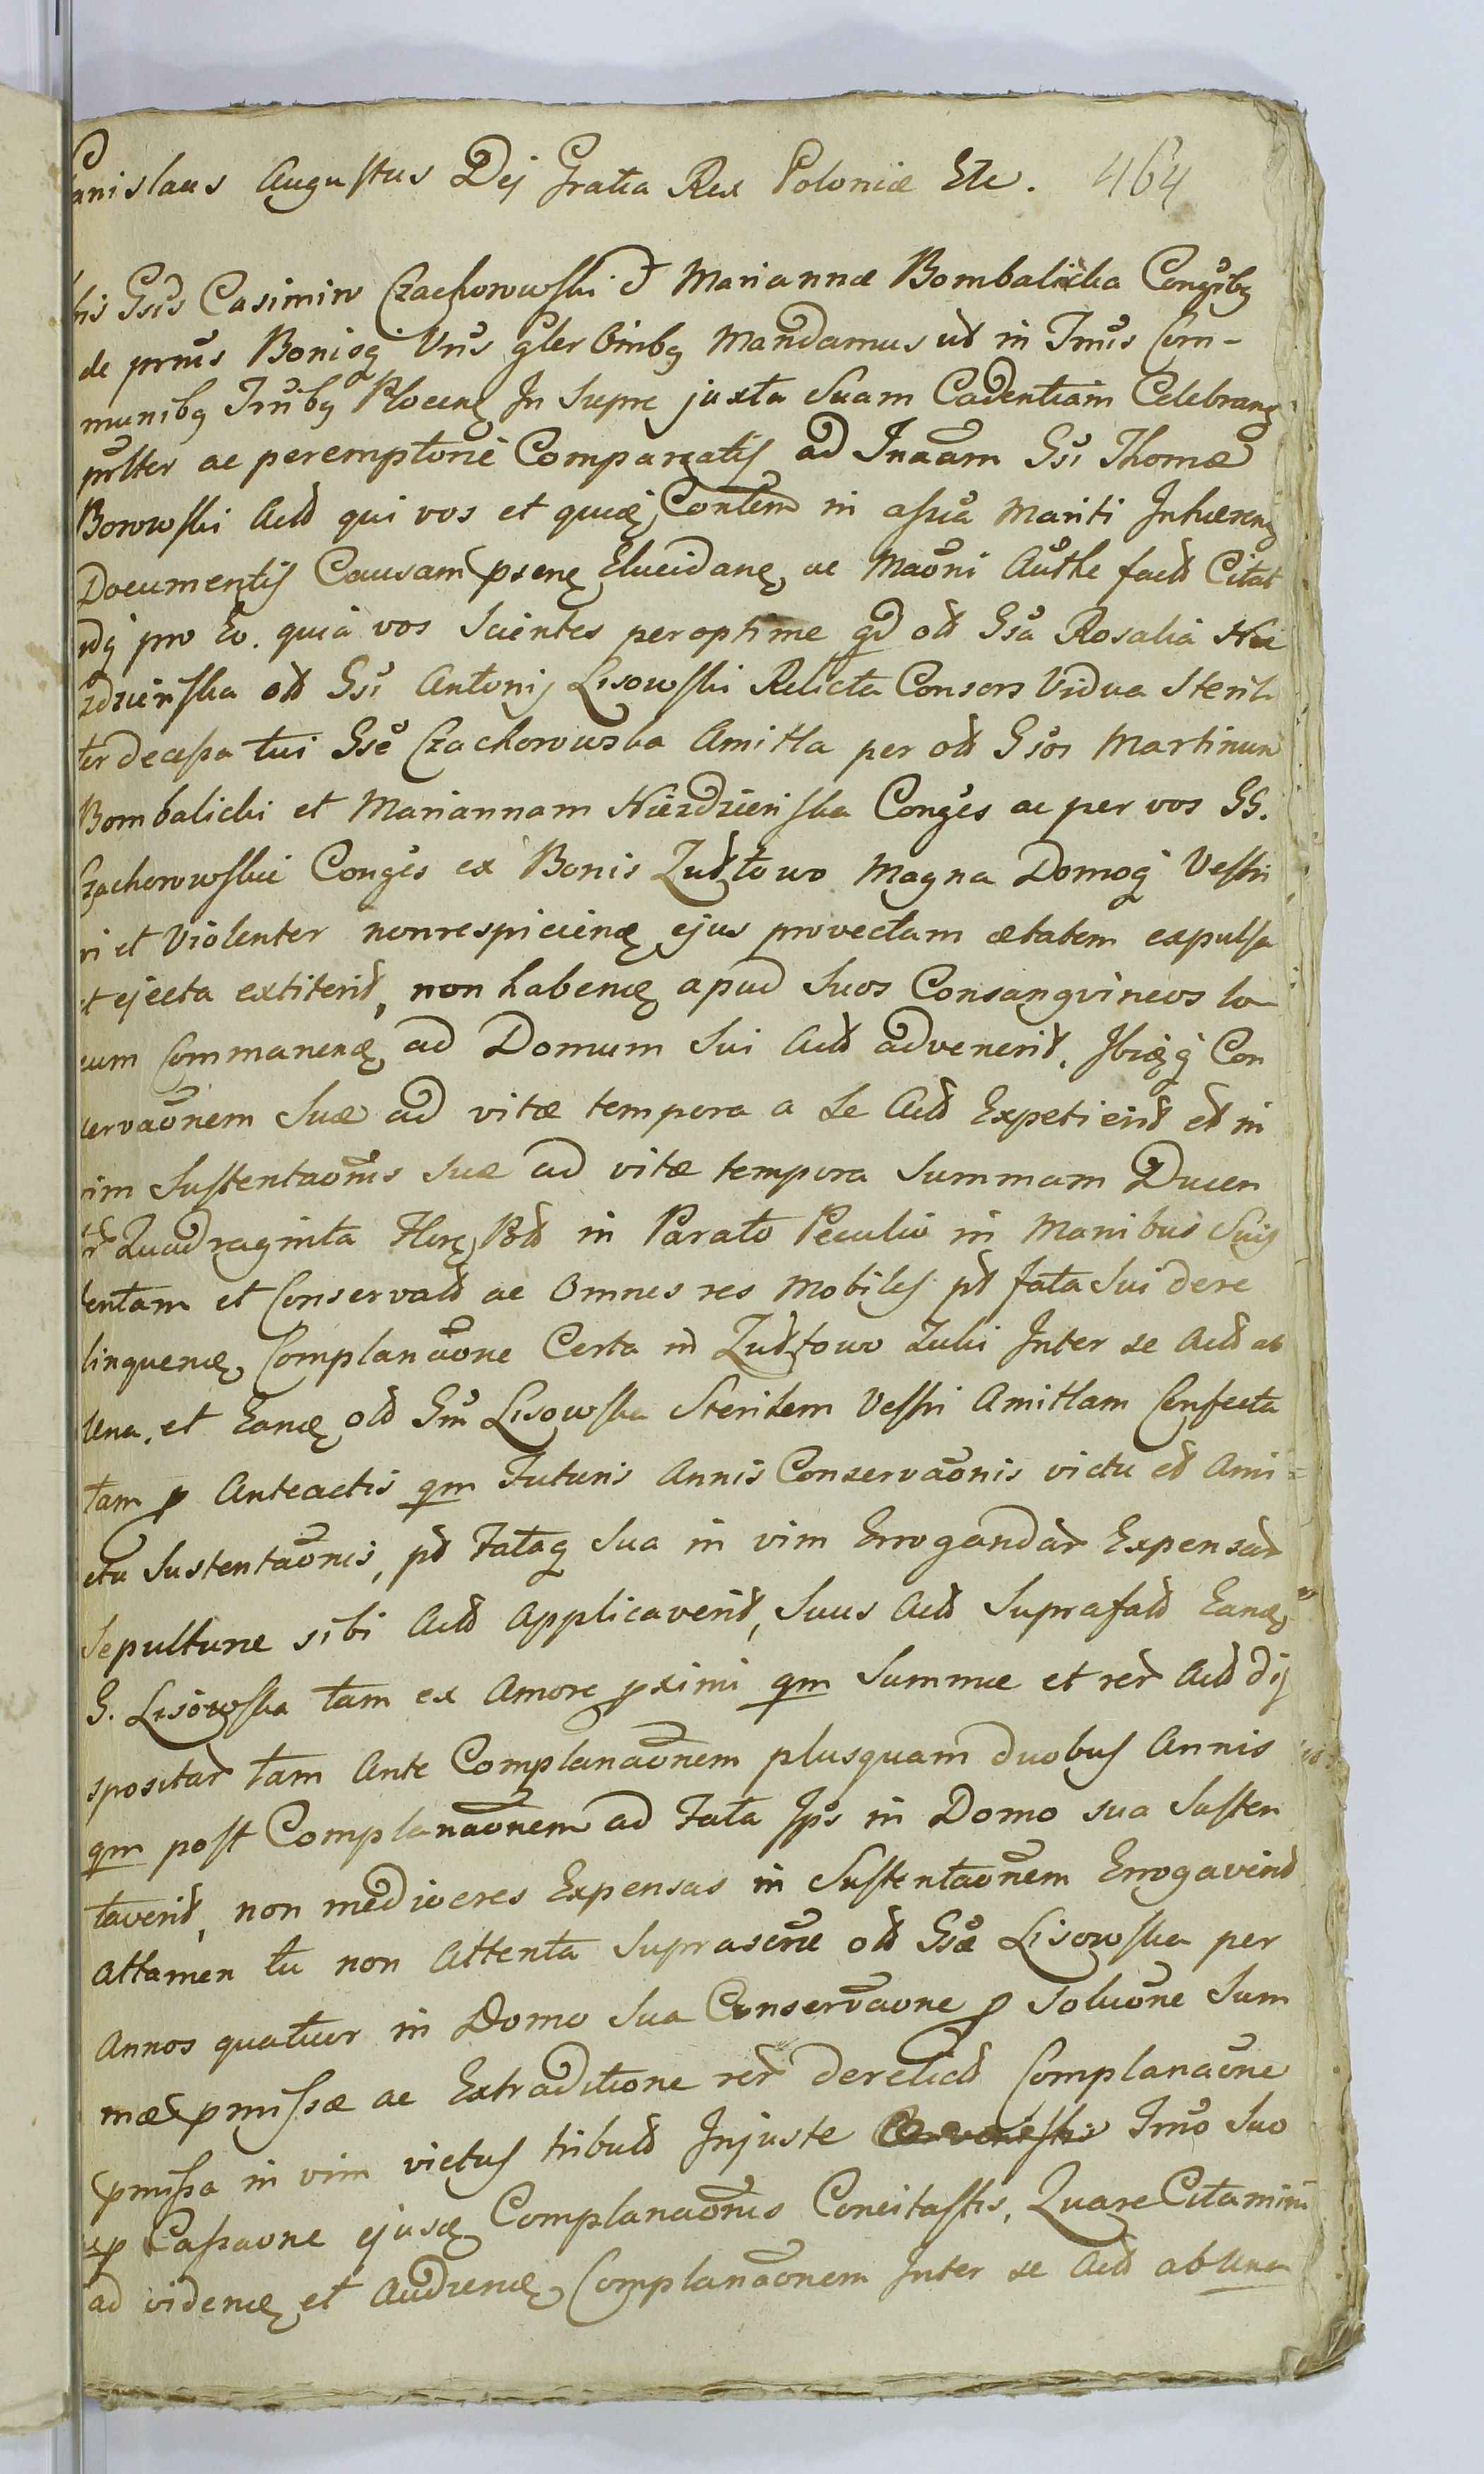 anislaus Augustus Dej Gratia Rex Poloniæ Etc. 464
Gsis Casimiro Czachorowski & Mariannæ Bombalicka Congibq
de prmis Bonisq Vris gler Omibq Mandamus ut in Jmis Com-
munibq Jrubq Plocenę In Supre juxta Suam Cadentiam Celebranę
prlter ac peremptorie Compareatis ad Inãam Gsi Thomæ
Borowski Actt qui vos et quiæ, Conlem in assia Mariti Inhæreñę
Documentis Causam psenę Elucidanę, ac Maõni Authe factt Citat
idq pro Eo. quia vos Scientes peroptime qd ott Gsa Rosalia Nie
zdzieńska ott Gsi Antonij Lisowski Relicta Consors Vidua Steril
ter decessa tui Gsæ Czachorowska Amitta per ott Gsos Martinum
Bombalicki et Mariannam Niezdzieńska Conges ac per vos GG.
Czachorowskie Conges ex Bonis Zuttowo Magna Domoq Vestri
ri et Violenter nonrespicienę ejus provectam ætatem expulsa
et ejecta extiterit, non habenę apud Suos Consangvineos lo
cum Commanenę, ad Domum Sui Actt advenerit. Ibiæq Con
servaõnem Suæ ad vitæ tempora a se Actt Expetierit et in
vim Sustentaõnis Suæ ad vitæ tempora Summam Ducen
Quadraginta Florę, Pol in Parato Peculio in Manibus Suis
tentam et Conservatt ac Omnes res Mobiles pt fata Sui dere
linquenę, Complanãone Certa in Zuttowo Zulki Inter se Actt ab
Una. et Eanę ott Gm Lisowska Sterilem Vestri Amittam Confecta
tam p Anteactis qm Futuris Annis Conservaõnis victu et Ami=
ctu Sustentaõnis, pt Fataq Sua in vim Errogandar Expensar
Sepulturæ sibi Actt Applicaverit, Suus Actt Suprafatt Eanę,
G. Lisowska tam ex Amore pximi qm Summæ et rer Actt dij
spositar tam Ante Complanaõnem plusquam duobus Annis
qm post Complanaõnem ad Fata Ips in Domo sua Susten
taverit, non mediocres Expensas in Sustentaõnem Errogaverit
attamen tu non Attenta Suprascrie ott Gsæ Lisowska per
Annos quatuor in Domo Sua Conservãone p Soluõne Sum
mæ pmissæ ac Extraditione rer derelictt Complanaõne
pmissa in vim victus tributt Injuste Imo Suo
p Cassaone ejusdę Complanaõnis Concitastis, Quare Citamini
ad videnę et Audienę, Complanaõnem Inter se Actt ab Una